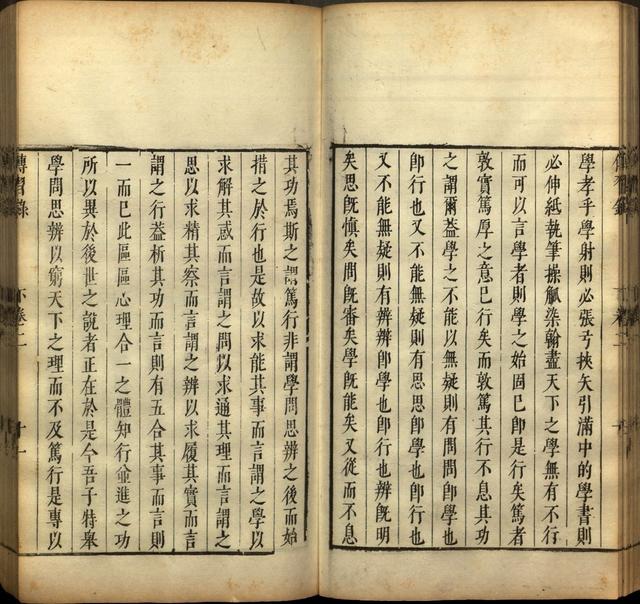 學孝乎學射則必張弓挾矢引滿中的學書則
必伸紙執筆操觚染翰盡天下之學無有不行
而可以言學者則學之始固已卽是行矣篤者
敦實篤厚之意已行矣而敦篤其行不息其功
之謂爾葢學之不能以無疑則有問問卽學也
卽行也又不能無疑則有思思卽學也卽行也
又不能無疑則有辨辨卽學也卽行也辨旣明
矣思旣愼矣問旣審矣學旣能矣又從而不息
其功焉斯之謂篤行非謂學問思辨之後而始
措之於行也是故以求能其事而言謂之學以
求解其惑而言謂之問以求通其理而言謂之
思以求精其察而言謂之辨以求履其實而言
謂之行葢析其功而言則有五合其事而言則
一而已此區區心理合一之體知行竝進之功
所以異於後世之說者正在於是今吾子特舉
學問思辨以窮天下之理而不及篤行是專以
傳習錄 卷二 十一